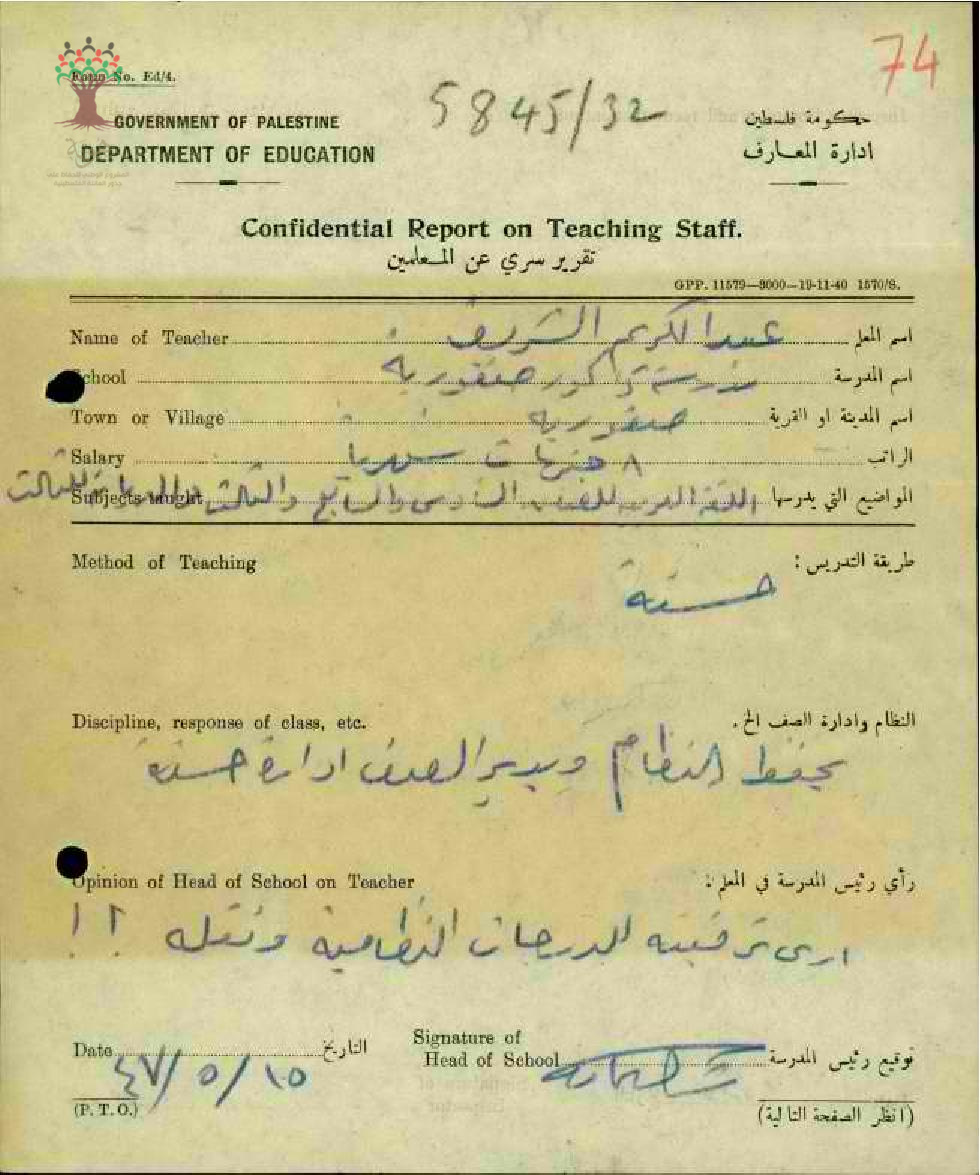 74
Form No. Ed/4.
5845/32
GOVERNMENT OF PALESTINE
حكومة فلسطين
DEPARTMENT OF EDUCATION
ادارة المعارف
Confidential Report on Teaching Staff.
تقرير سري عن المعلمين
GPP. 11579—3000—19-11-40 1570/S.
Name of Teacher عبد الكريم الشريف اسم المعلم
School مدرسة ذكور صفورية اسم المدرسة
Town or Village صفورية اسم المدينة او القرية
Salary ٨ جنيهات شهريا الراتب
Subjects taught اللغة العربية للصف السادس والسابع والثالث للثالث المواضيع التي يدرسها
Method of Teaching طريقة التدريس :
حسنة
Discipline, response of class, etc. النظام وادارة الصف الخ .
يحفظ النظام ويدير الصف ادارة حسنة
Opinion of Head of School on Teacher رأي رئيس المدرسة في المعلم :
ارى ترقيته للدرجات النظامية ونقله !!
Signature of
Date ٤٧/٥/١٥ التاريخ Head of School توقيع رئيس المدرسة
(P. T. O.) (انظر الصفحة التالية)